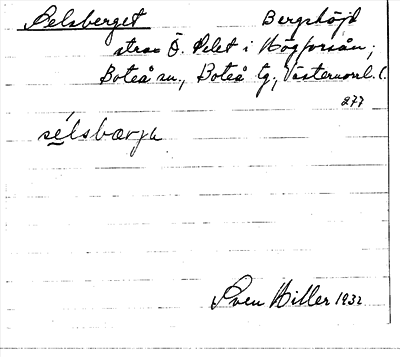 Selsberget Bergshöjd
strax Ö. Selet i Högforsån;
Boteå sn., Boteå tg., Västernorrl. l.
277
sélsbærjə
Sven Hiller 1932